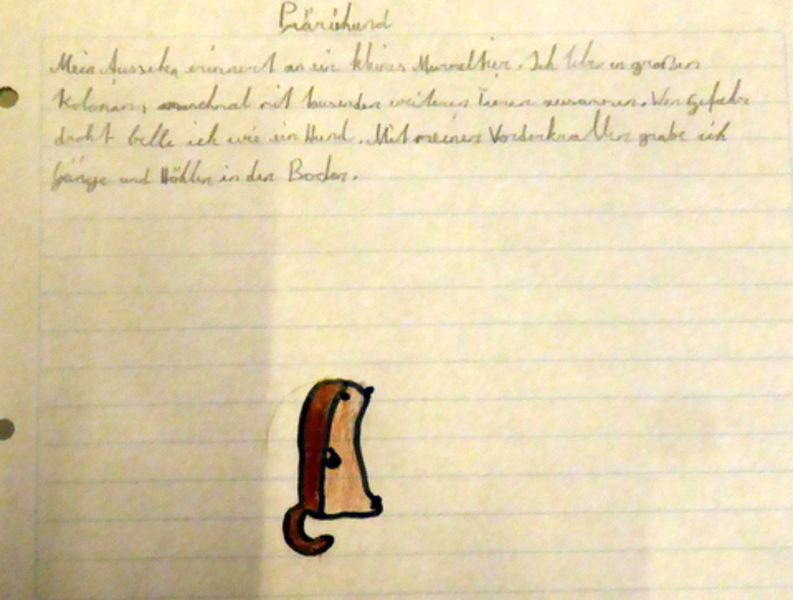 Präriehund
Mein Aussehen erinnert an ein kleines Murmeltier. Ich lebe in großen
Kolonien, manchmal mit tausenden weiteren Tieren zusammen. Wen Gefahr
droht belle ich wie ein Hund. Mit meinen Vorderkrallen grabe ich
Gänge und Höhlen in den Boden.